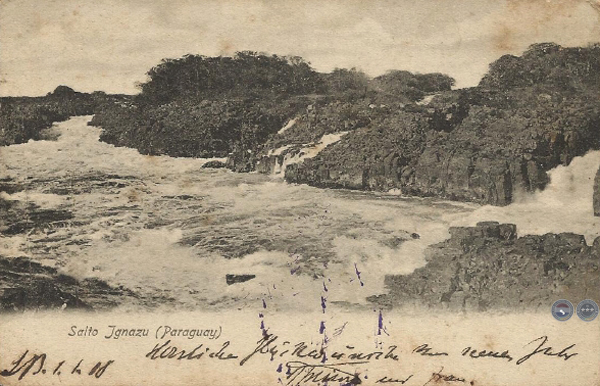 Salto Ignazu (Paraguay)
Herzliche Glückwünsche zum neuen Jahr
und Frau.